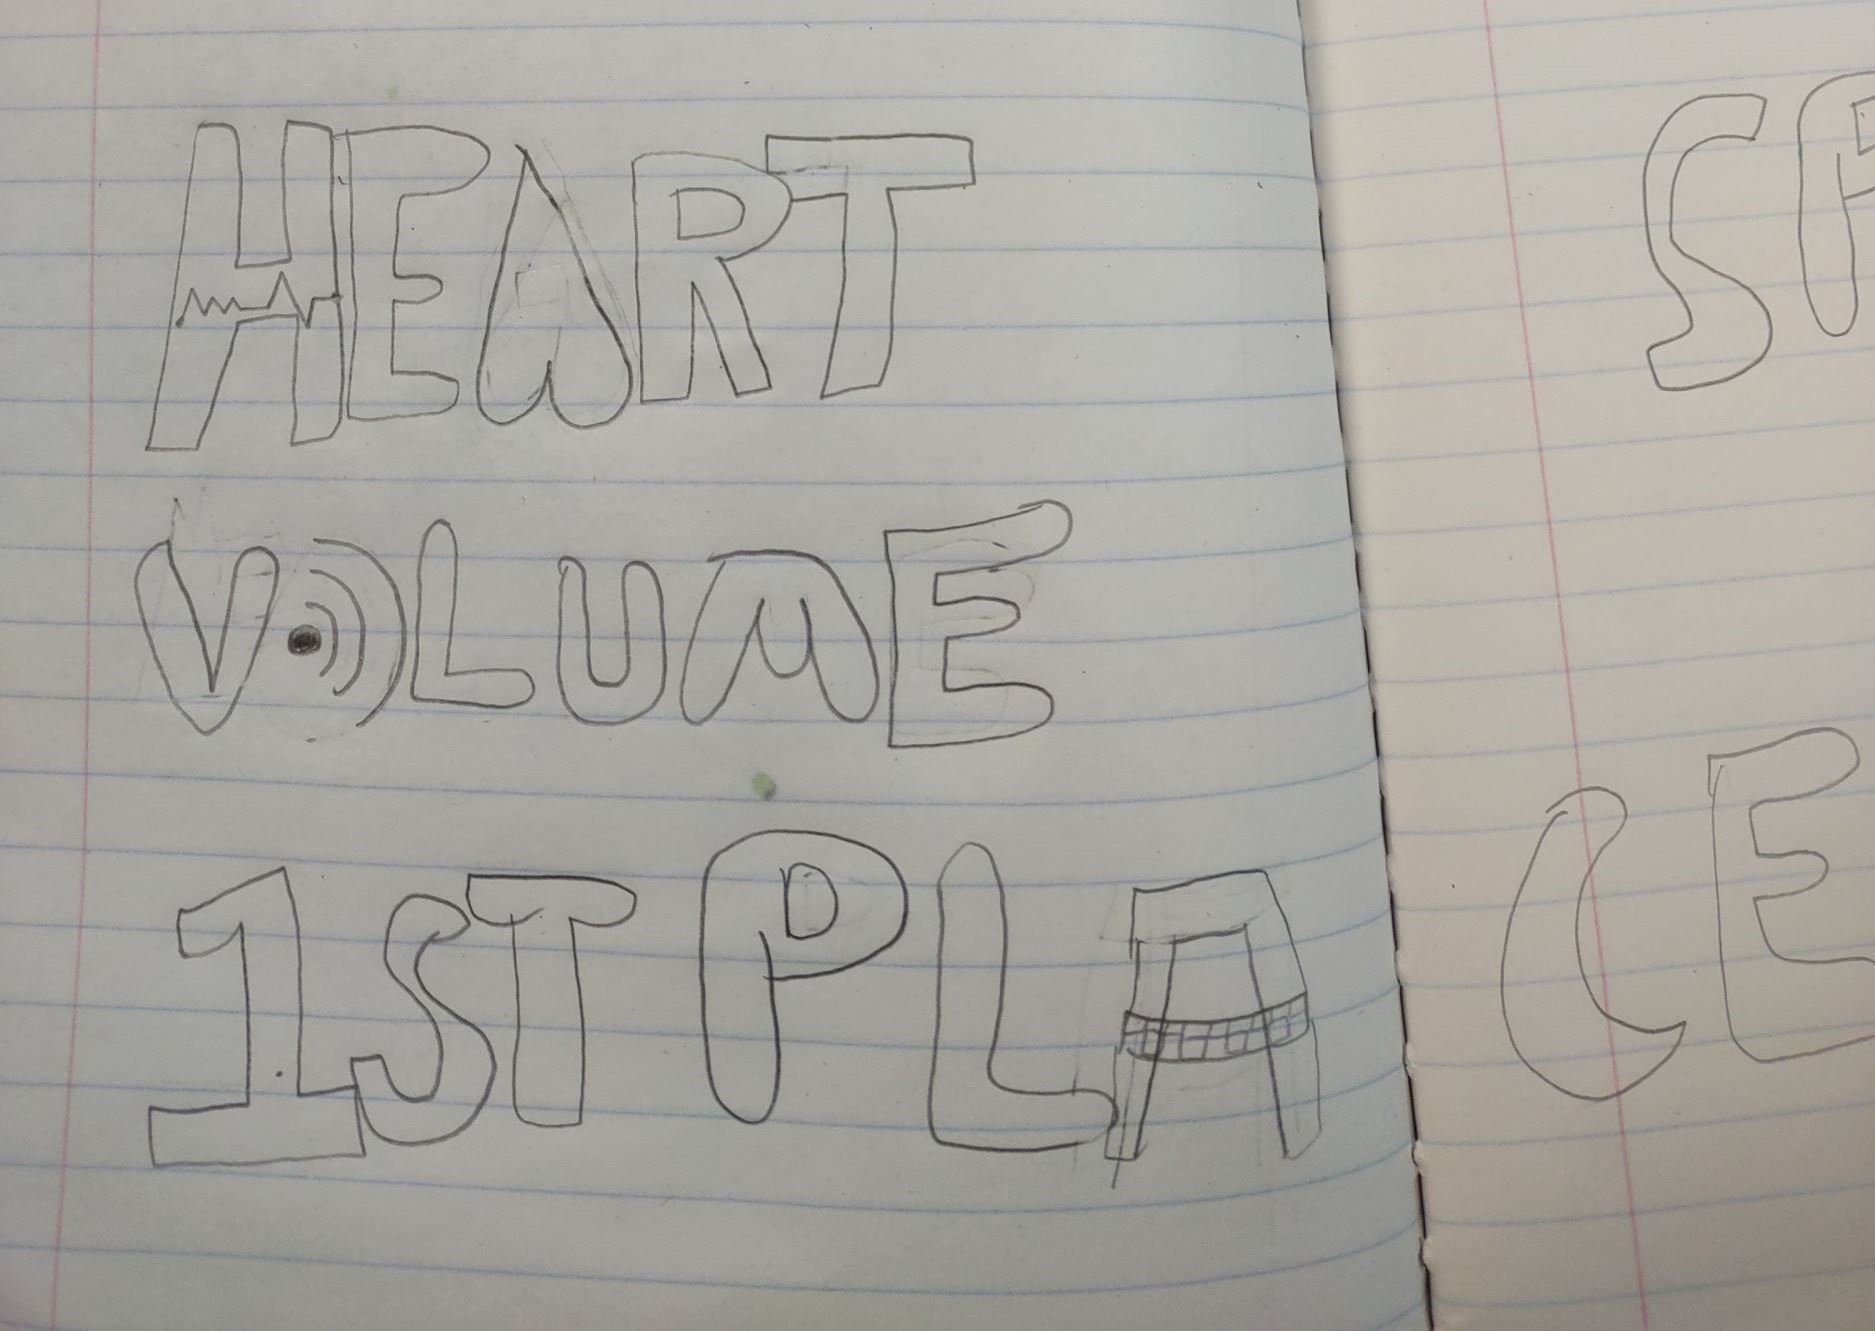 HEART
VOLUME
1ST PLACE